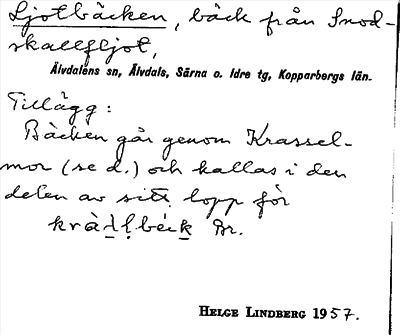 Ljotbäcken, bäck från Snod-
skallfljot,
Älvdalens sn, Älvdals, Särna o. Idre tg, Kopparbergs län.
Tillägg:
Bäcken går genom Krassel-
mor (se d.) och kallas i den
delen av sitt lopp för
Br.
HELGE LINDBERG 1957.